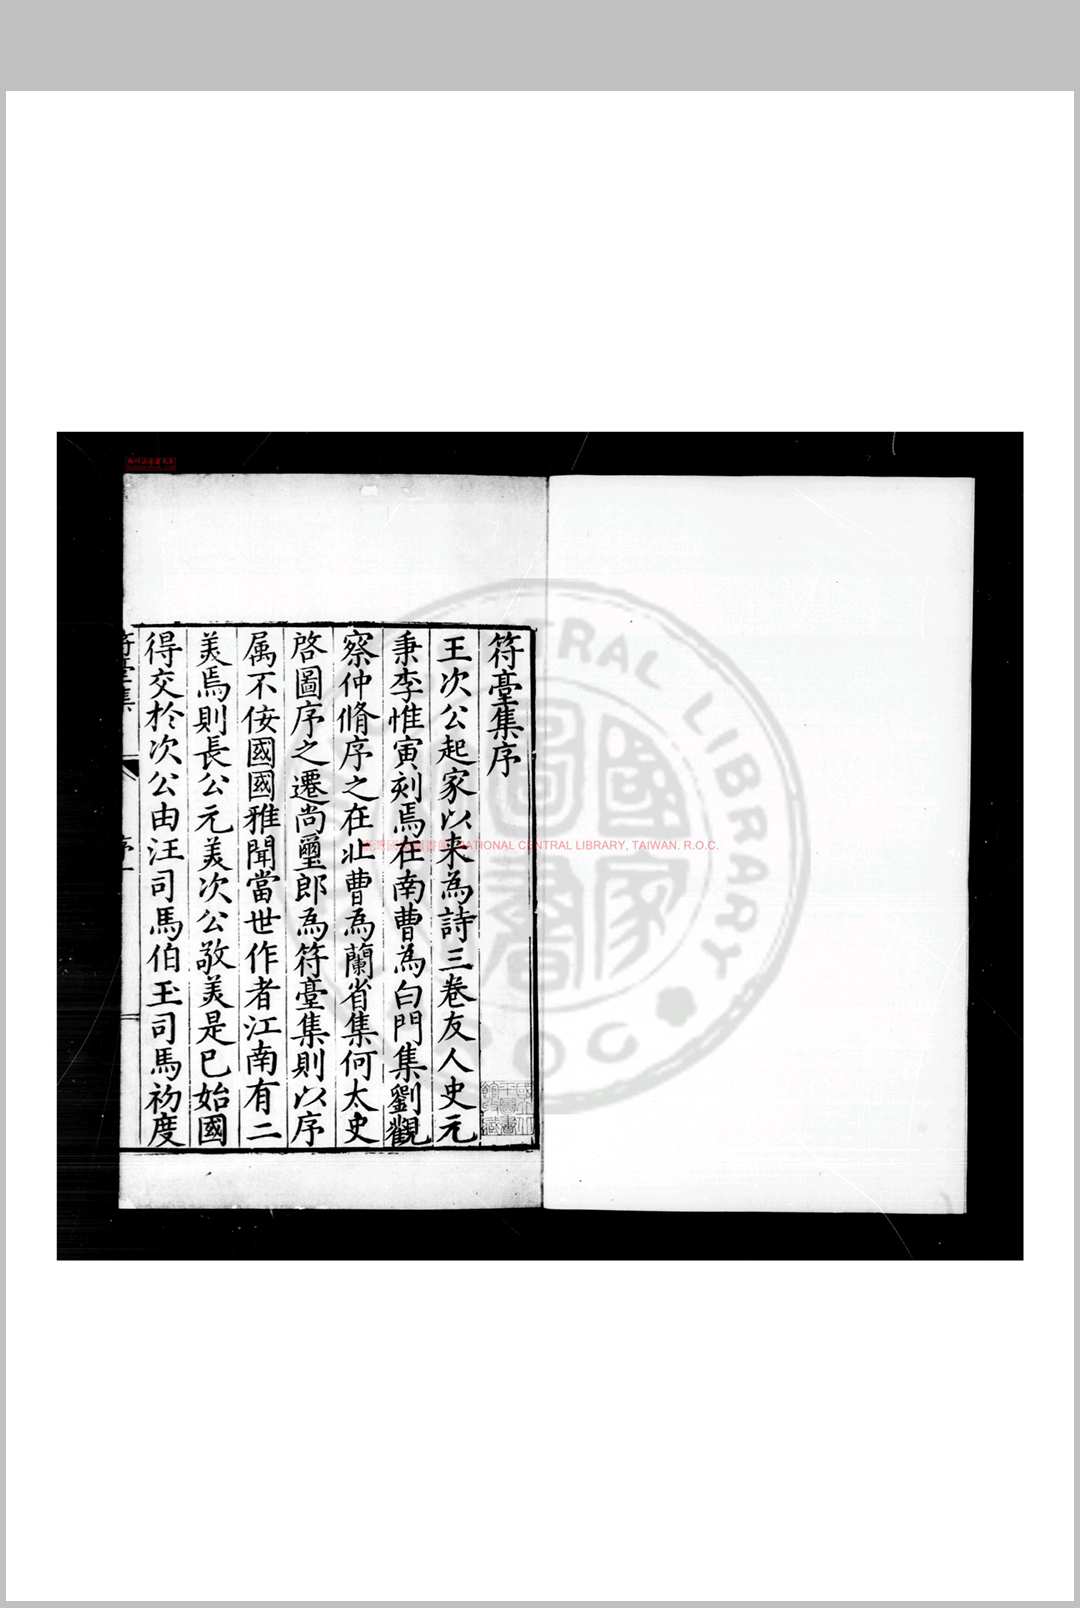 符臺集序
王次公起家以来為詩三卷友人史元
秉李惟寅刻焉在南曹為白門集劉觀
察仲脩序之在壯曹為蘭省集何太史
啓圖序之遷尚璽郎為符臺集則以序
属不佞國國雅聞當世作者江南有二
美焉則長公元美次公敬美是已始國
得交於次公由汪司馬伯玉司馬初度
符臺集
序
NATIONAL CENTRAL LIBRARY, TAIWAN. R.O.C.
CENTRAL LIBRARY
R.O.C.
國家圖書館